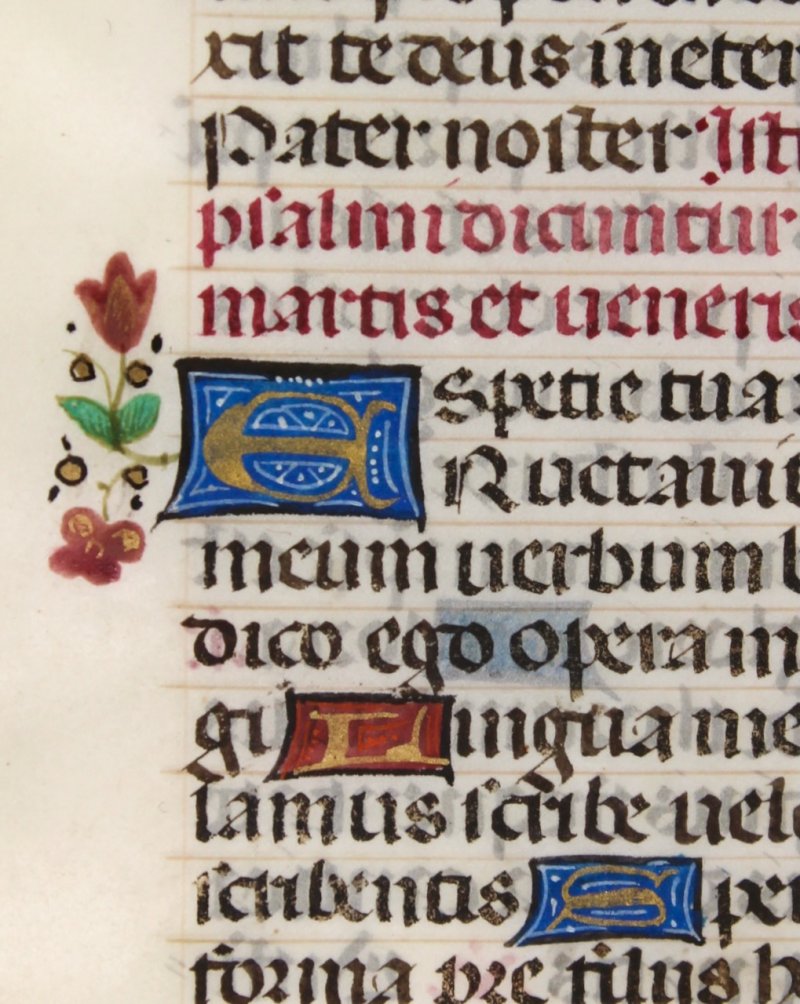 xit te deus in eter
Pater noster Isti
psalmi dicuntur
martis et ueneris
E Spetie tua
Ructauit
meum uerbum b
dico ego opera m
gi Lingua me
lamus scribe uel
scribentis Spe
forma pre filiis h